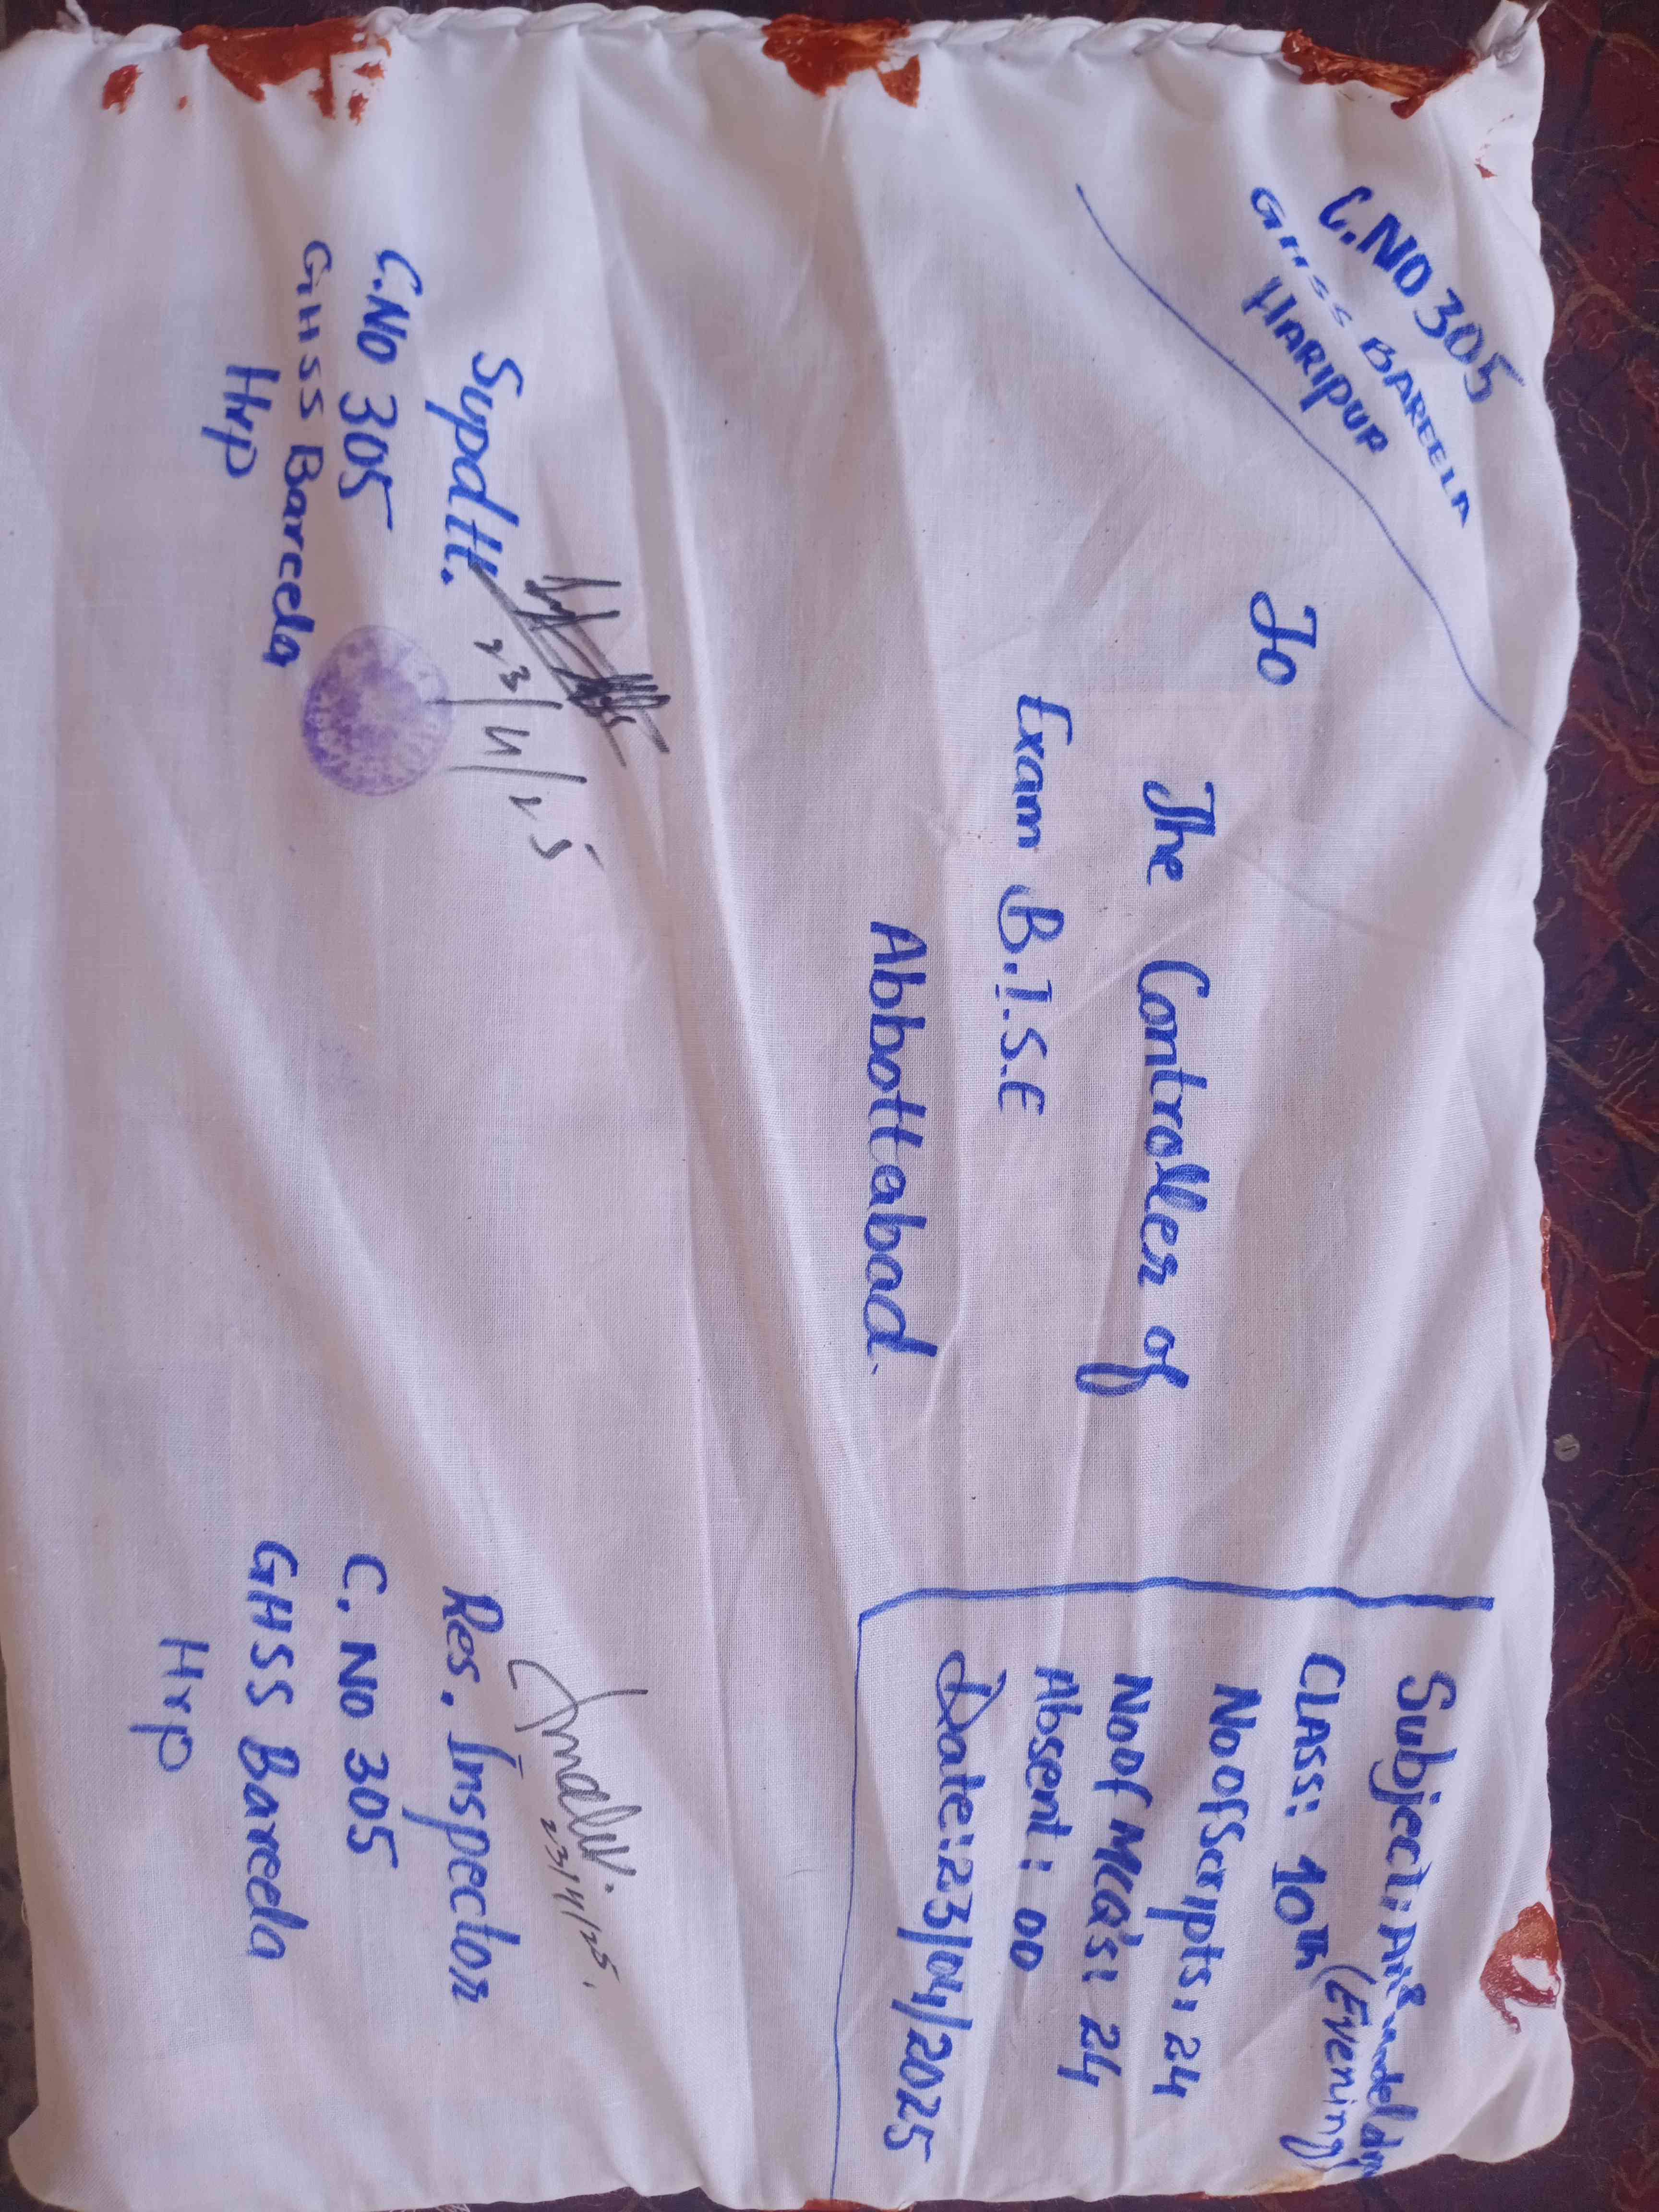 C.NO 305
GHSS BAREELA
HARIPUR
Subject: Art & model drg
CLASS: 10TH (Evening)
No of Scripts: 24
No of MCQ's: 24
Absent: 00
Date: 23/04/2025
To
The Controller of
Exam B.I.S.E
Abbottabad.
23/4/25
Supdtt.
C.No 305
GHSS Bareela
Hrp
23/4/25.
Res. Inspector
C. No 305
GHSS Bareela
Hrp